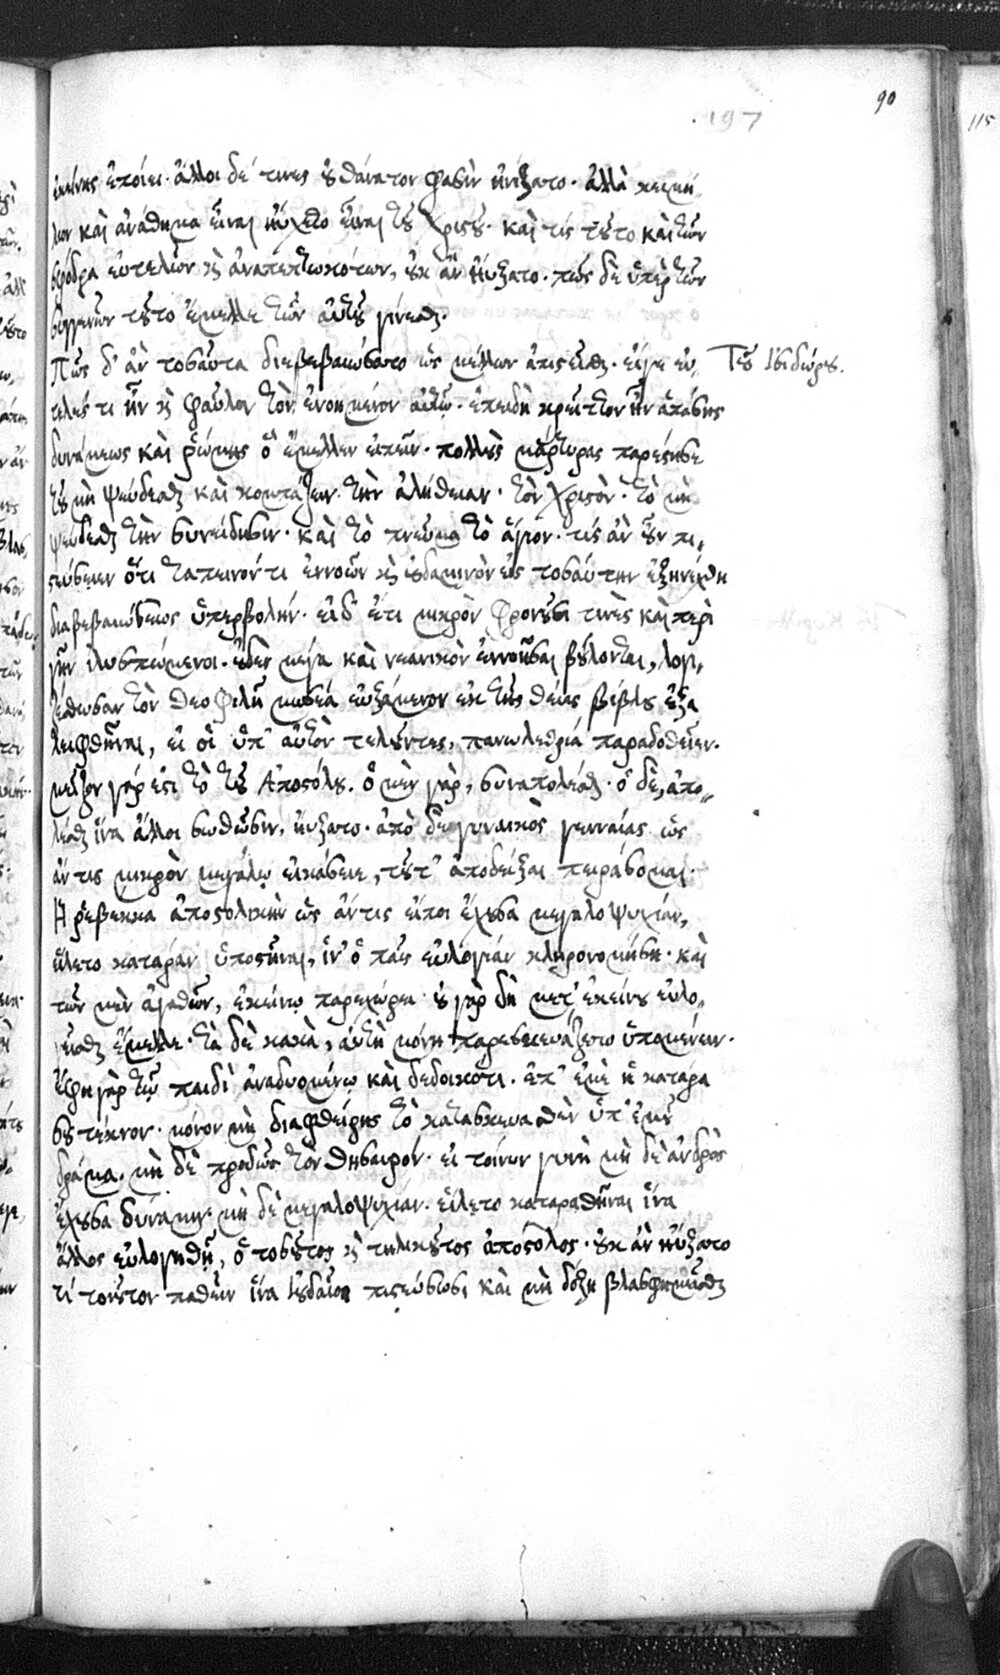 197
90
ἐκείνης ἐποίει· ἄλλοι δέ τινες οὐ θάνατον φασὶν ηὔξατο· ἀλλὰ κειμή
λιον καὶ ἀνάθημα εἶναι ηὔχετο εἶναι τοῦ Χριστοῦ· καὶ τίς τοῦτο καὶ τῶν
σφόδρα εὐτελῶν καὶ ἀναπεπτωκότων, οὐκ ἂν ηὔξατο· πῶς δὲ ὑπὲρ τῶν
συγγενῶν τοῦτο ἔμελλε τῶν αὐτοῦ γίνεσθαι·
Πῶς δ' ἂν τοσαῦτα διεβεβαιώσατο ὡς μέλλων ἀπιστεῖσθαι· εἴγε εὐ, Τοῦ Ἰσιδώρου.
τελές τι ἦν καὶ φαῦλον τὸν ἐνοημένον αὐτῷ· ἐπειδὴ κρεῖττον ἦν ἁπάσης
δυνάμεως καὶ ῥώμης ὃ ἔμελλεν εἰπεῖν· πολλοὺς μάρτυρας παρέστησε
τοῦ μὴ ψεύδεσθαι καὶ κομπάζειν· τὴν ἀλήθειαν· τὸν Χριστὸν· τὸ μὴ
ψεύδεσθαι τὴν συνείδησιν· καὶ τὸ πνεῦμα τὸ ἅγιον· τίς ἂν οὖν πι,
στεύσειεν ὅτι ταπεινόν τι ἐννοῶν καὶ οὐδαμινὸν εἰς τοσαύτην ἐξηνέχθη
διαβεβαιώσεως ὑπερβολήν· εἰ δ' ἔτι μικρὸν φρονοῦσί τινὲς καὶ περὶ
γῆν ἰλυσπώμενοι· οὐδὲν μέγα καὶ νεανικὸν ἐννοῆσαι βούλονται, λογι,
ζέσθωσαν τὸν θεοφιλῆ μωσέα εὐξάμενον ἐκ τῆς θείας βίβλου ἐξα
λειφθῆναι, εἰ οἱ ὑπ' αὐτὸν τελοῦντες, πανωλεθρία παραδοθεῖεν·
μεῖζον γάρ ἐστι τὸ τοῦ Ἀποστόλου. ὃ μὲν γὰρ, συναπολέσθαι· ὃ δὲ, ἀπο,,
λέσθαι ἵνα ἄλλοι σωθῶσιν, ηὔξατο· ἀπὸ δὲ γυναικὸς γενναίας ὡς
ἄν τις μικρὸν μεγάλῳ εἰκάσειε, τοῦτ' ἀποδεῖξαι πειράσομαι·
Ἡ ῥεβεκκα ἀποστολικὴν ὡς ἄν τις εἴποι ἔχουσα μεγαλοψυχίαν,
εἵλετο κατάραν ὑποστῆναι, ἵν' ὁ παῖς εὐλογίαν κληρονομήσῃ· καὶ
τῶν μὲν ἀγαθῶν, ἐκείνῳ παρεχώρει· οὐ γὰρ δὴ μετ' ἐκείνου εὐλο,,
γεῖσθαι ἔμελλε· τὰ δὲ κακὰ, αὐτὴ μόνη παρεσκευάζετο ὑπομένειν·
ἔφη γὰρ τῷ παιδὶ ἀναδυομένῳ καὶ δεδοικότι. ἐπ' ἐμὲ ἡ κατάρα
σου τέκνον· μόνον μὴ διαφθείρῃς τὸ κατασκευασθὲν ὑπ' ἐμοῦ
δρᾶμα. μὴ δὲ προδῷς τὸν θησαυρόν· εἰ τοίνυν γυνὴ μὴ δὲ ἀνδρὸς
ἔχουσα δύναμιν· μὴ δὲ μεγαλοψυχίαν· εἵλετο καταραθῆναι ἵνα
ἄλλος εὐλογηθῇ, ὁ τοσοῦτος καὶ τηλικοῦτος ἀπόστολος· οὐκ ἂν ηὔξατο
τί τοιοῦτον παθεῖν ἵνα Ἰουδαῖοι πιστεύσωσι καὶ μὴ δόξῃ βλασφημεῖσθαι
115